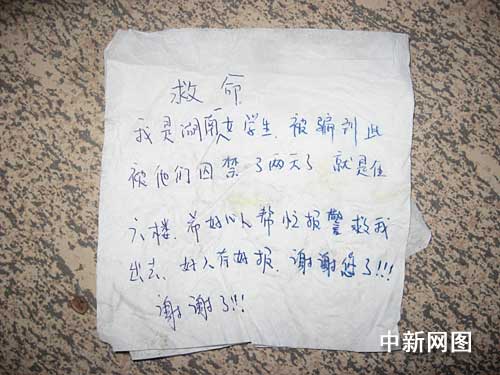 救命
我是湖南女学生 被骗到此
被他们囚禁了两天了 就是住
六楼.希好心人帮忙报警救我
出去.好人有好报.谢谢您了!!!
谢谢了!!!
中新网图